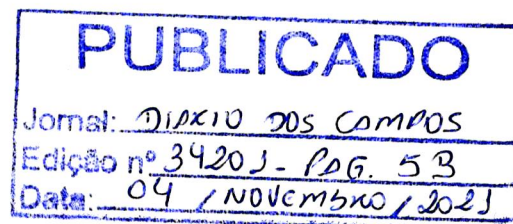 PUBLICADO
Jornal: DIÁRIO DOS CAMPOS
Edição nº 34201 - PÁG. 5B
Data: 04 / NOVEMBRO / 2021